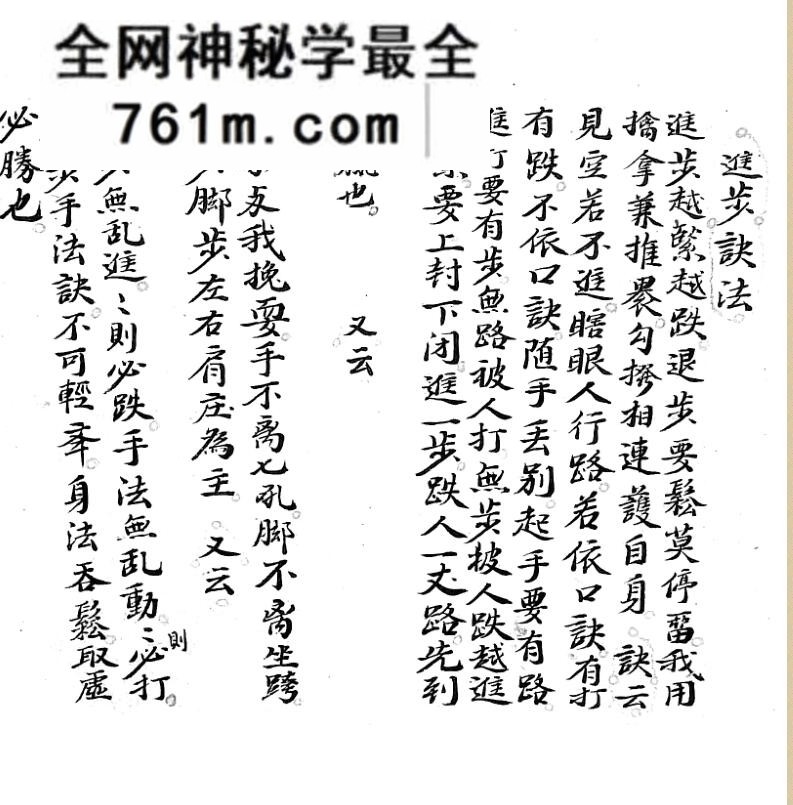 全网神秘学最全
761m.com
進步訣法
進步越緊越跌退步要鬆莫停畱我用
擒拿兼推㩓勾撥相連護自身 訣云
見空若不進瞎眼人行路若依口訣有打
有跌不依口訣随手丢别起手要有路
進打要有步無路被人打無步披人跌越進
要上封下闭進一步跌人一丈路先到
也 又云
我挽耍手不离七孔脚不离坐跨
脚步左右肩庄為主 又云
無乱進〻則必跌手法無乱動〻則必打
手法訣不可輕牽身法吞鬆取虛
必勝也